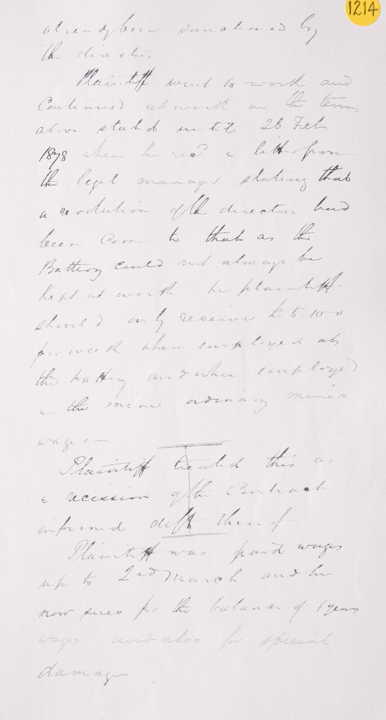 1214
already been sanctioned by
the director
Plaintiff went to work and
Continued at work on the terms
above stated until 26 Feb
1878 when he recd a letter from
the legal manager stating that
a resolution of the directors had
been Come to that as the
Battery could not always be
kept at work he plaintiff
should only receive £5.10.0
per week when employed at
the battery and when employed
in the mine ordinary miners
wages –
Plaintiff treated this as
a recession of the Contract
informed deft thereof
Plaintiff was paid wages
up to 2nd March and he
now sues for the balance of 1 years
wages and also for special
damage